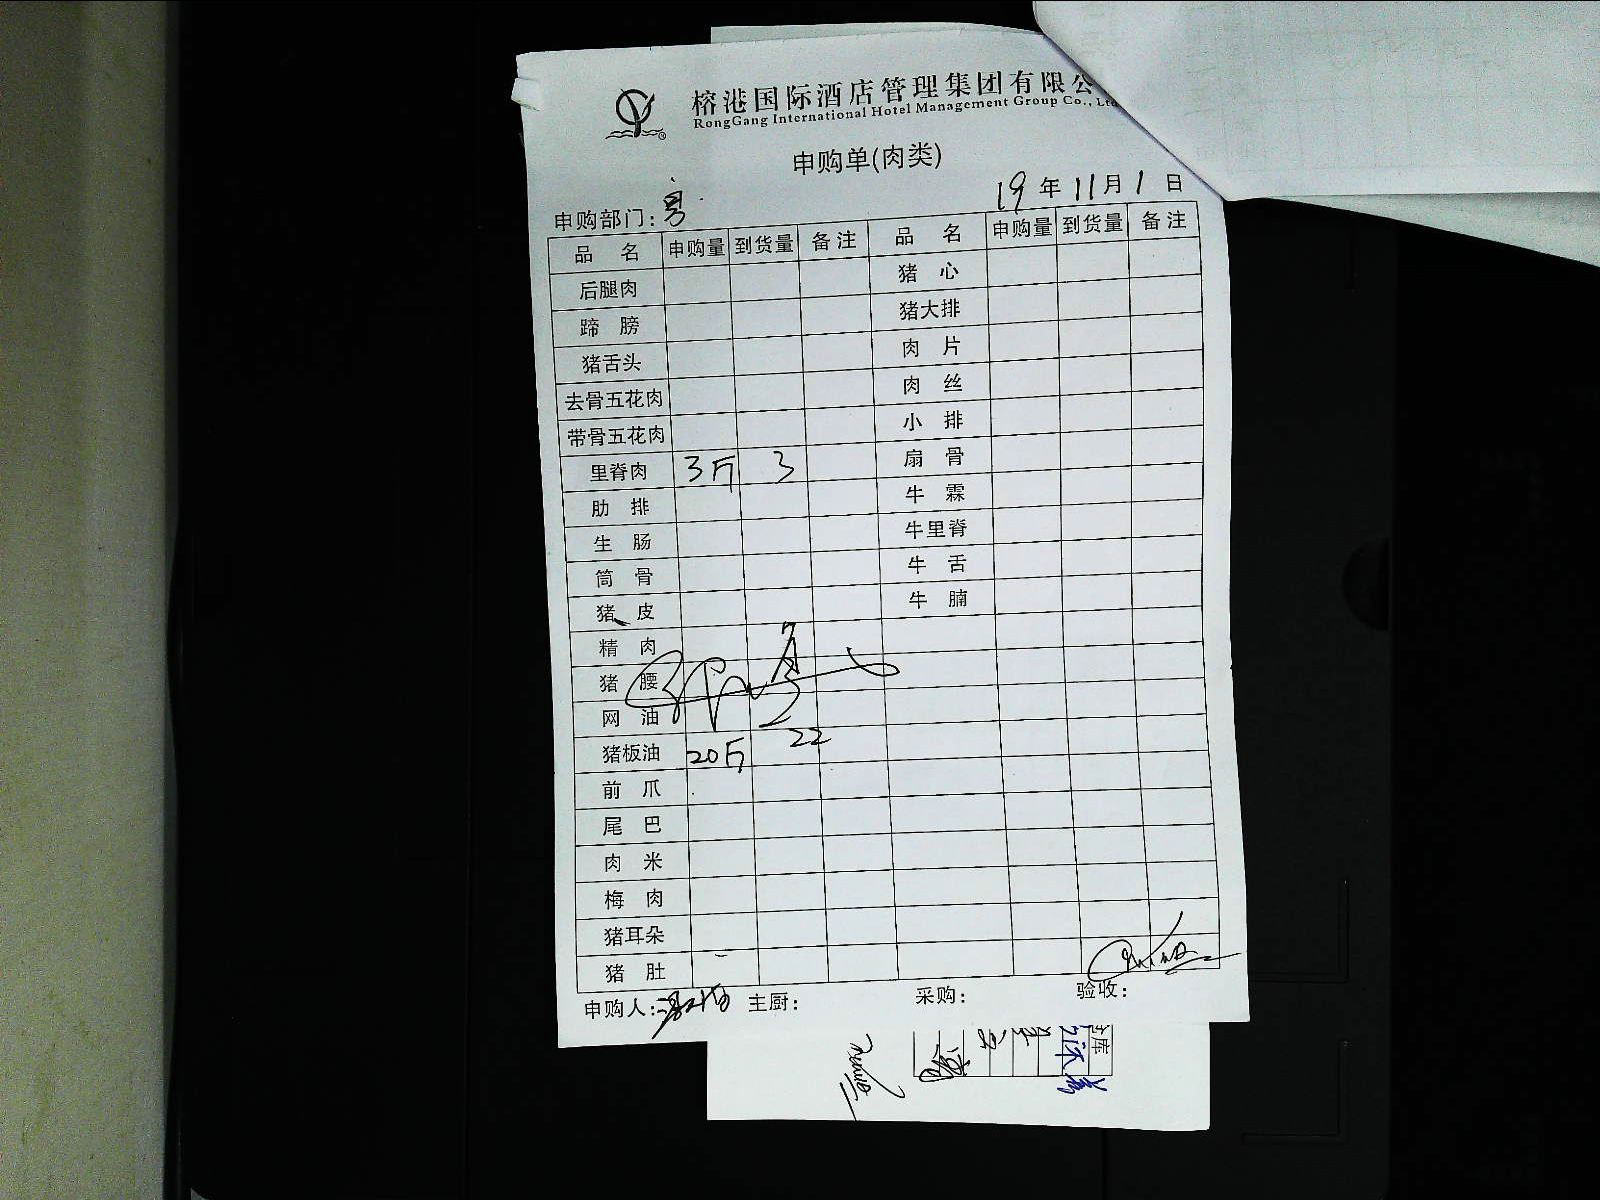 榕港国际酒店管理集团有限公
RongGang International Hotel Management Group Co., Ltd
申购单(肉类)
19年11月1日
申购部门:
品 名 申购量 到货量 备注 品 名 申购量 到货量 备注
后腿肉 猪 心
蹄 膀 猪大排
猪舌头 肉 片
去骨五花肉 肉 丝
带骨五花肉 小 排
里脊肉 3斤 3 扇 骨
肋 排 牛 霖
生 肠 牛里脊
筒 骨 牛 舌
猪 皮 牛 腩
精 肉
猪 腰
网 油
猪板油 20斤 22
前 爪
尾 巴
肉 米
梅 肉
猪耳朵
猪 肚
申购人: 主厨: 采购: 验收:
库